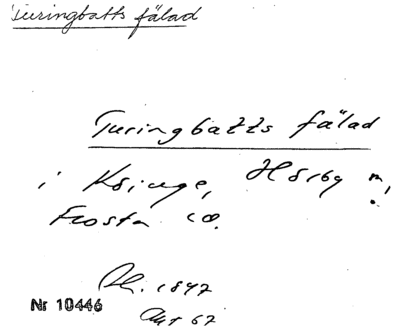 Turingbatts fälad
Turingbatts fälad
i Ksinge, Hörby m,
Frosta co.
Nr 10446